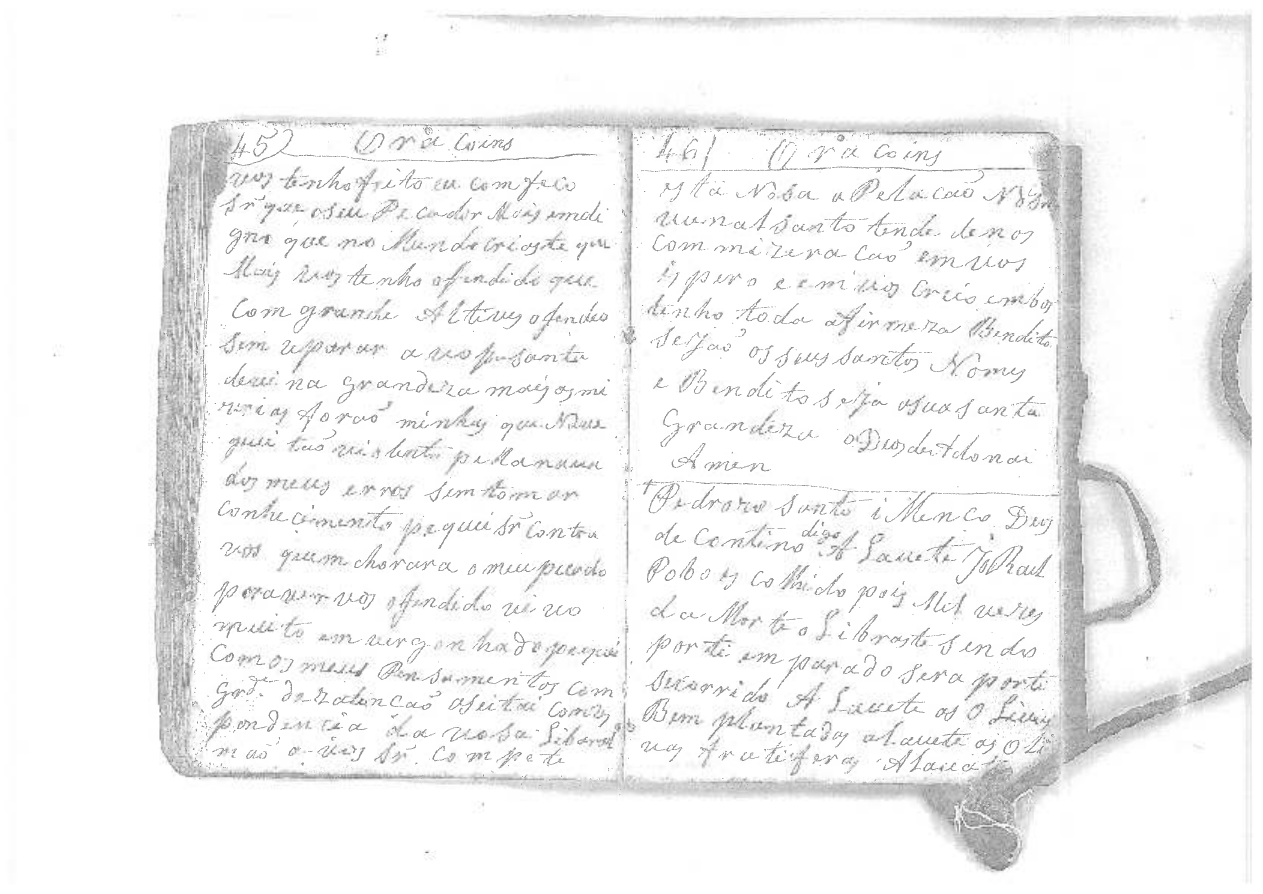 45) Orácoins
vos tenho feito eu comfeço
Sr. que o seu Pecador Mais emdi
gno que no Mundo criaste que
Mais vos tenho ofendido que
com grande Altives ofendeo
sem reparar a vosa santa
devina grandeza mais as mi
zerias forão minhas que
quei tão violento pella
dos meus erros sem tomar
conhecimento pequei Sr. contra
vos quem chorara o meu pecado
para ver vos ofendido vivo
muito emvergonhado pequei
com os meus Pensamentos com
grd.e dezatencão aseitai
pondencia da vosa Liberal
mão a vos Sr. Compete
46) Orácoins
esta Nosa aPelacão
vunal santo tende de nos
commizeracão em vos
ispero e em vos creio em vos
tenho toda afirmeza Bendito
sejão os seus santos Nomes
e Bendito seja a sua santa
Grandeza o Deos de Adonai
Amen
+ Pedrozo Santo i Menco Deos
de Contino digo A Lauete JsRael
Pobo es colhido pois Mil vezes
da Morte o Libraste sendo
por ti em parado sera por ti
secorrido A Lauete os O Livais
Bem plantados alauete as O Li
vas fratiferas Alauete